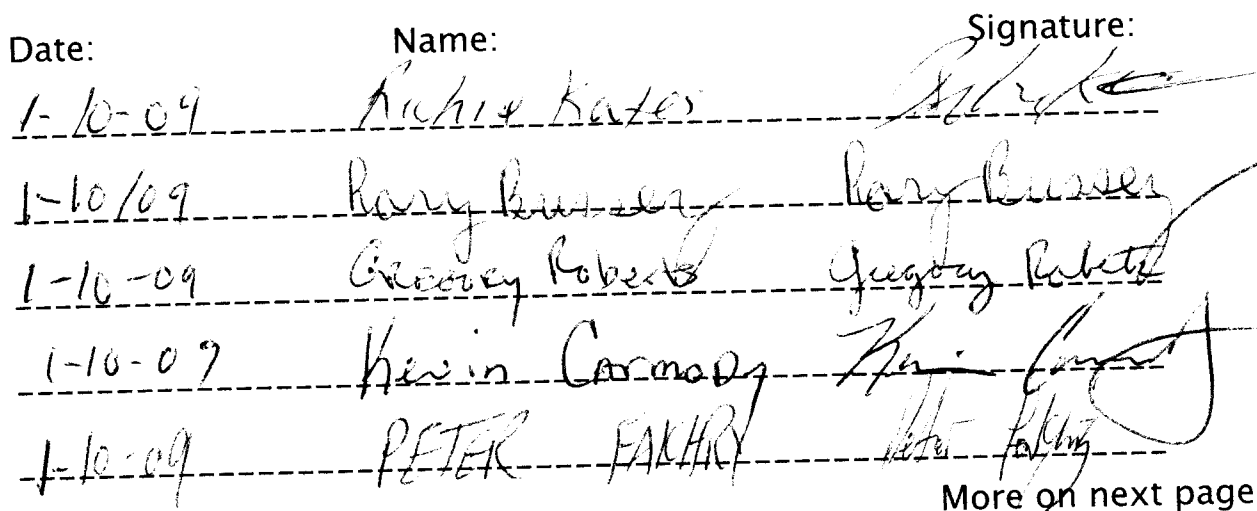 Date: Name: Signature:
1-10-09 Richie Kates
1-10/09 Rory Bussey Rory Bussey
1-10-09 Gregory Roberts Gregory Roberts
1-10-09 Kevin Carmody Kevin
1-10-09 PETER FAKHRY Peter Fakhry
More on next page